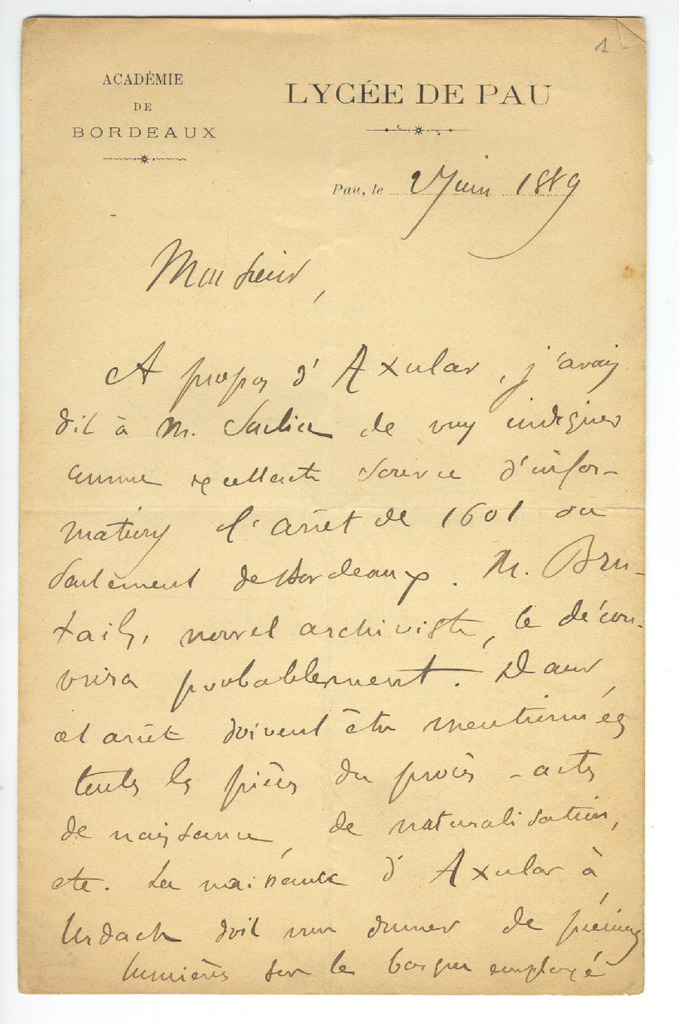 1
ACADÉMIE
DE
BORDEAUX
LYCÉE DE PAU
Pau, le 2 Juin 1889
Monsieur,
A propos d'Axular, j'avais
dit à M. de vous indiquer
comme excellente source d'infor-
mations l'arrêt de 1601 du
Parlement de Bordeaux. M. Bru-
tails, nouvel archiviste, le décou-
vrira probablement. Dans
cet arrêt doivent être mentionnées
toutes les pièces du procès - actes
de naissance, de naturalisation,
etc. La naissance d'Axular à
Urdach doit nous donner de précieuses
lumières sur le basque employé